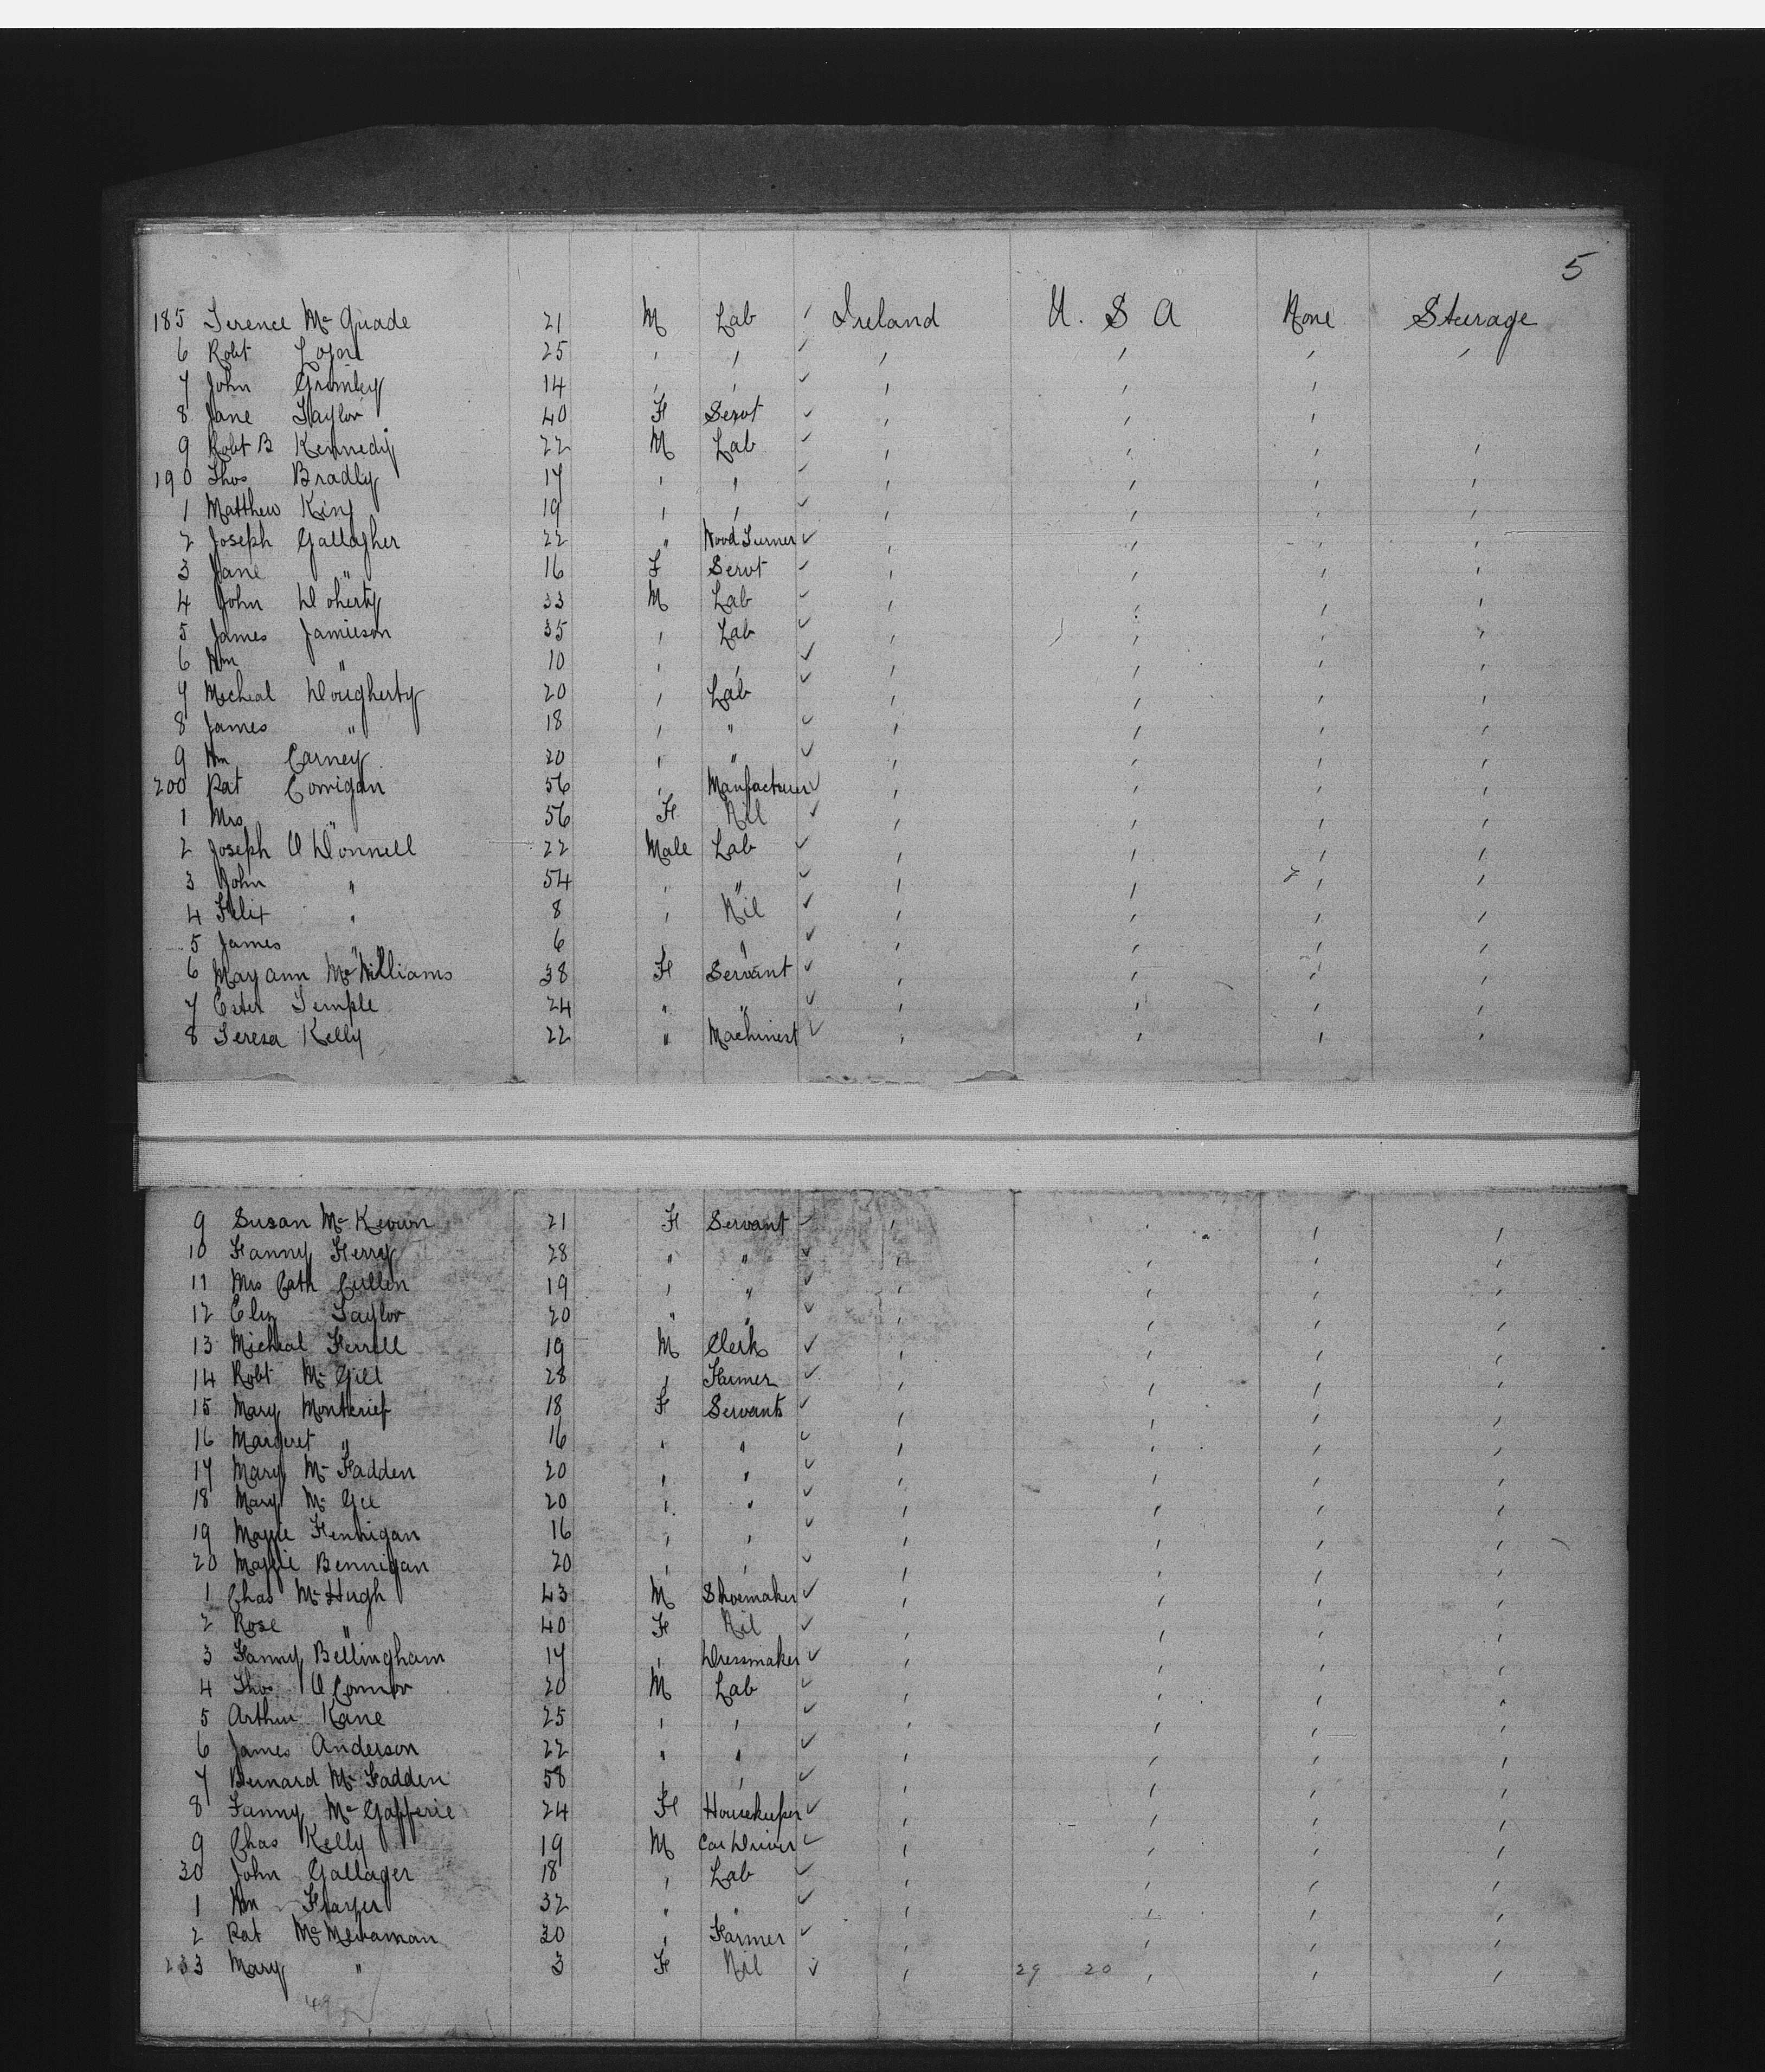 5
185 Terence Mc Quade 21 M Lab ✓ Ireland U. S A None Steerage
6 Robt 25 " " ✓ " " " "
7 John Grimley 14 " " ✓ " " "
8 Jane Taylor 40 F Servt ✓ " " "
9 Robt B Kennedy 22 M Lab ✓ " " " "
190 Thos Bradly 17 " " ✓ " " " "
1 Matthew King 19 " " ✓ " " " "
2 Joseph Gallagher 22 " Wood Turner ✓ " " " "
3 Jane " 16 F Servt ✓ " " " "
4 John Doherty 33 M Lab ✓ " " " "
5 James Jamieson 35 " Lab ✓ " " " "
6 Wm " 10 " " ✓ " " " "
7 Micheal Dougherty 20 " Lab ✓ " " " "
8 James " 18 " " ✓ " " " "
9 Wm Carney 20 " " ✓ " " " "
200 Pat Corrigan 56 " Manfacturer ✓ " " " "
1 Mrs " 56 F Nil ✓ " " " "
2 Joseph O Donnell 22 Male Lab ✓ " " " "
3 John " 54 " " ✓ " " " "
4 Felix " 8 " Nil ✓ " " " "
5 James " 6 " " ✓ " " " "
6 Mary ann Mc Williams 38 F Servant ✓ " " " "
7 Ester Temple 24 " " ✓ " " " "
8 Teresa Kelly 22 " Machinest ✓ " " " "
9 Susan Mc Keown 21 F Servant ✓ " " " "
10 Fanny Ferry 28 " " ✓ " " " "
11 Mrs Cath Cullen 19 " " ✓ " " " "
12 Eliz Taylor 20 " " ✓ " " " "
13 Micheal Ferrell 19 M Clerk ✓ " " " "
14 Robt Mc Gill 28 " Farmer ✓ " " " "
15 Mary Montcrief 18 F Servants ✓ " " " "
16 Margeret " 16 " " ✓ " " " "
17 Mary Mc Fadden 20 " " ✓ " " " "
18 Mary Mc Gee 20 " " ✓ " " " "
19 Maggie Fennigan 16 " " ✓ " " " "
20 Maggie Bennigan 20 " " ✓ " " " "
1 Chas Mc Hugh 43 M Shoemaker ✓ " " " "
2 Rose " 40 F Nil ✓ " " " "
3 Fanny Bellingham 17 " Dressmaker ✓ " " " "
4 Thos O Connor 20 M Lab ✓ " " " "
5 Arthur Kane 25 " " ✓ " " " "
6 James Anderson 22 " " ✓ " " " "
7 Bernard Mc Fadden 58 " " ✓ " " " "
8 Fanny Mc Gafferie 24 F Housekeeper ✓ " " " "
9 Chas Kelly 19 M Car Driver ✓ " " " "
30 John Gallager 18 " Lab ✓ " " " "
1 Wm 32 " " ✓ " " " "
2 Pat 30 " Farmer ✓ " " " "
233 Mary " 3 F Nil ✓ " 29 20 " " "
49